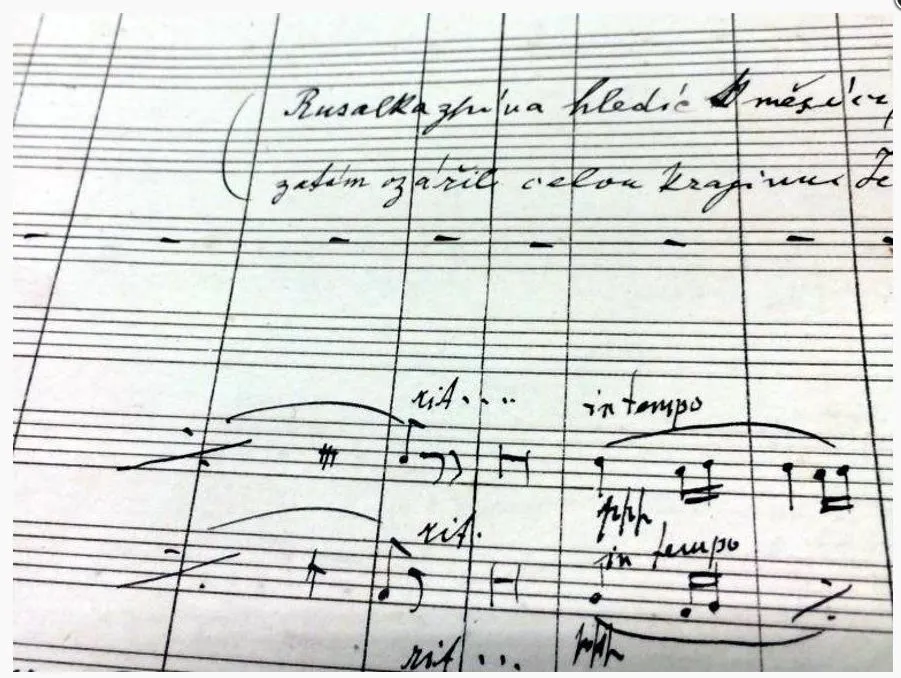 Rusalka zpívá hledíc k měsíci,
zatím ozářil celou krajinu. Je
rit....
in tempo
ppp
rit.
in tempo
ppp
rit...